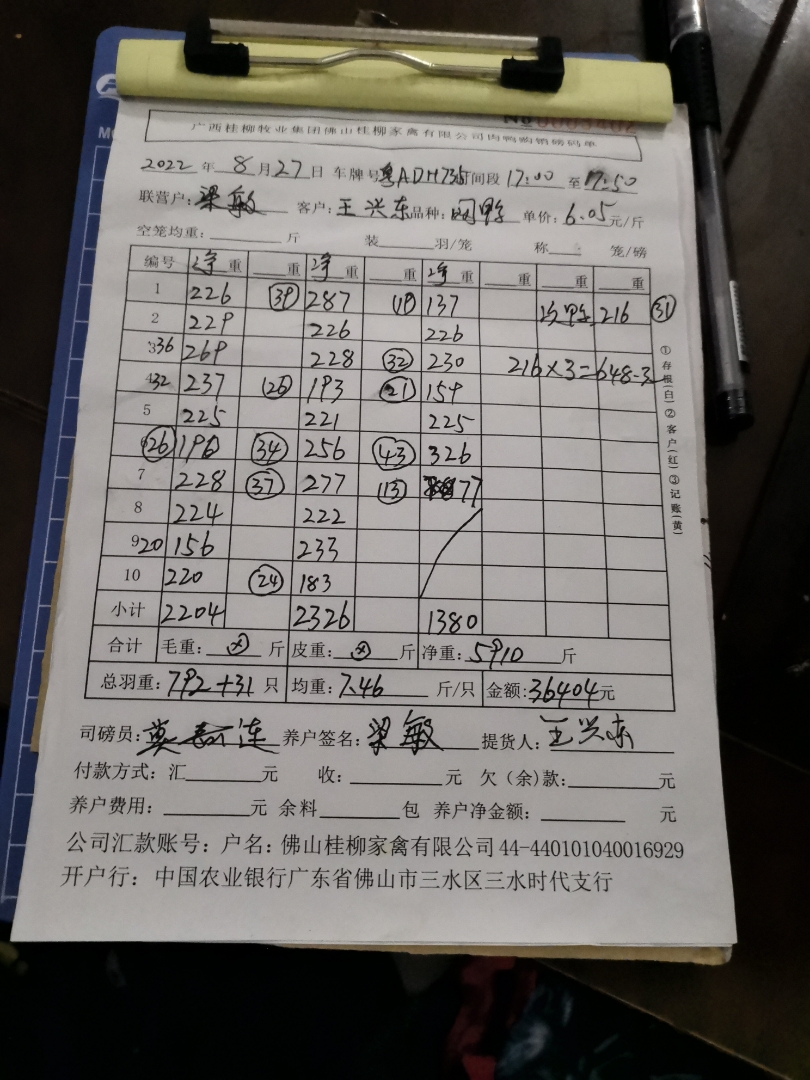 №0005402
广西桂柳牧业集团佛山桂柳家禽有限公司肉鸭购销磅码单
2022年8月27日 车牌号粤ADH735时间段17:00至17:50
联营户:梁敏 客户:王兴东品种: 单价:6.05元/斤
空笼均重: 斤 装 羽/笼 称 笼/磅
编号 净重 重 净重 重 净重 重 重 重
1 226 39 287 19 137 216 31
2 229 226 226
3 36 269 228 32 230 216×3=648-3
4 32 237 193 21 159
5 225 221 225
26 190 34 256 43 326
7 228 37 277 13 77
8 224 222
9 20 156 233
10 220 24 183
小计 2204 2326 1380
合计 毛重: 斤 皮重: 斤 净重:5910斤
总羽重:792+31只 均重:7.46斤/只 金额:36404元
司磅员: 养户签名:梁敏 提货人:王兴东
付款方式:汇 元 收: 元 欠(余)款: 元
养户费用: 元 余料 包 养户净金额: 元
公司汇款账号:户名:佛山桂柳家禽有限公司44-440101040016929
开户行:中国农业银行广东省佛山市三水区三水时代支行
①存根(白)②客户(红)③记账(黄)